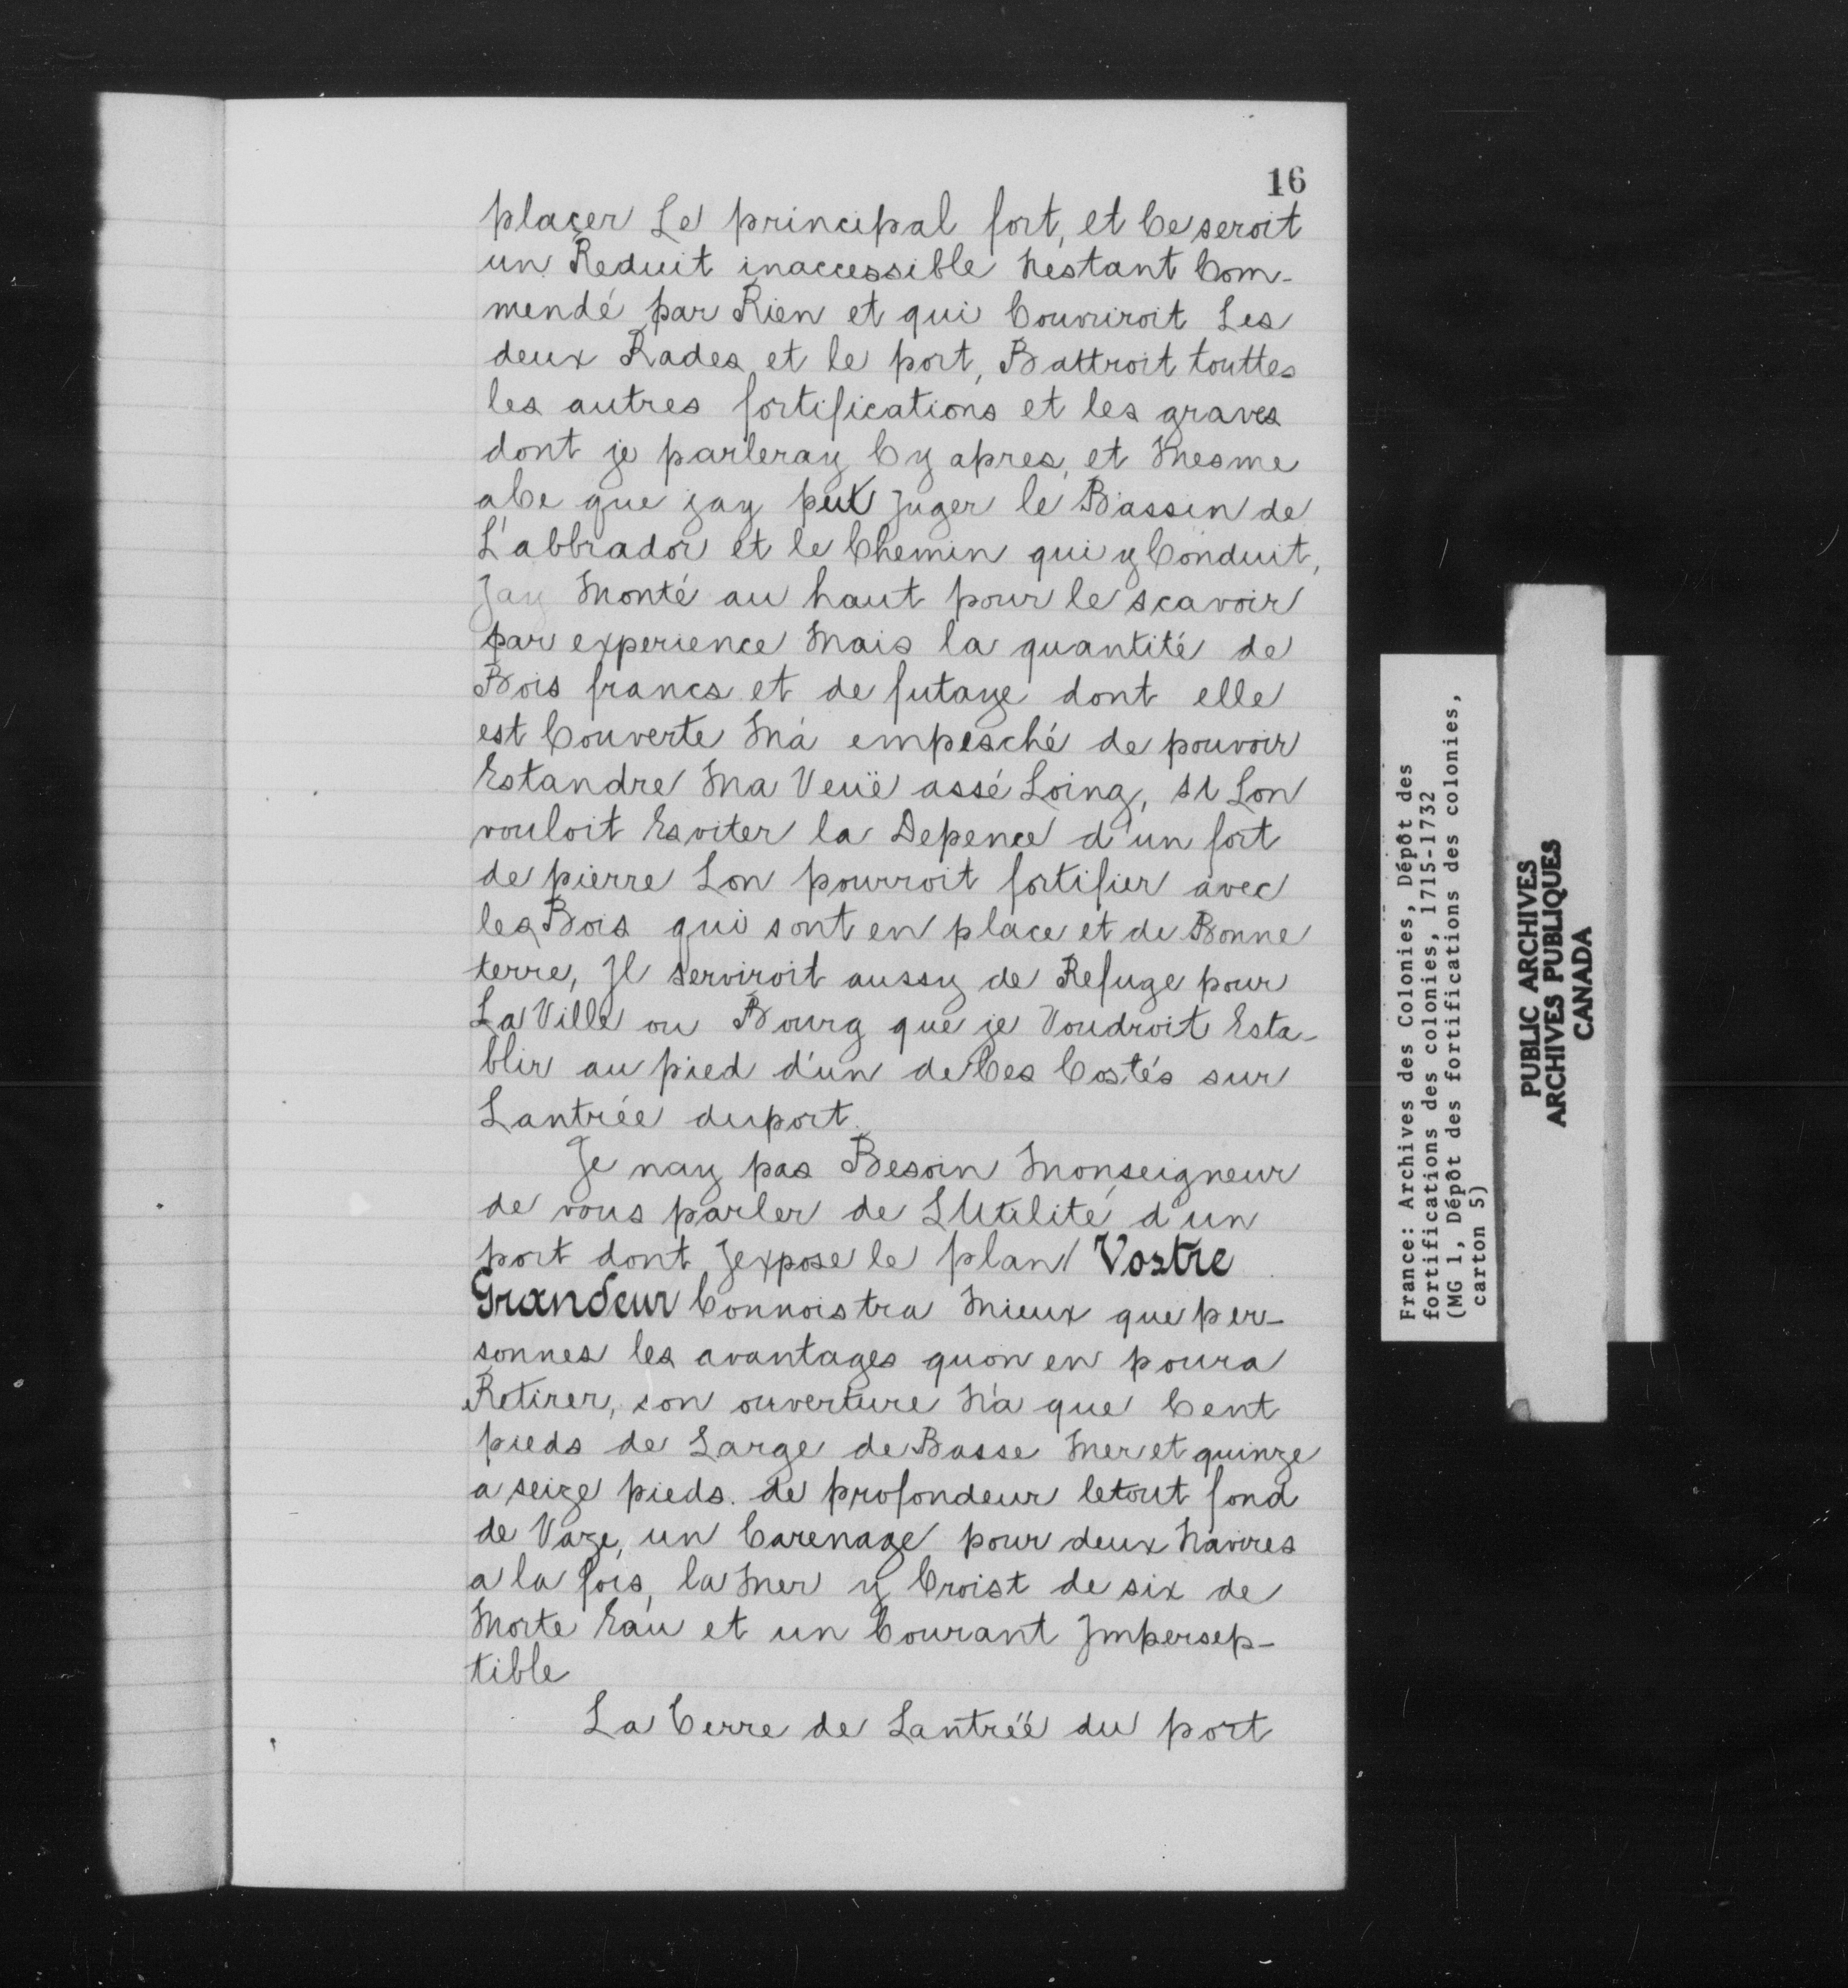 16
placer Le principal fort, et Ce seroit
un Reduit inaccessible Nestant Com-
mendé par Rien et qui Couvriroit Les
deux Rades et le port, Battroit touttes
les autres fortifications et les graves
dont je parleray Cy apres, et Mesme
a Ce que jay put Juger le Bassin de
L'abbrador et le Chemin qui y Conduit,
Jay Monté au haut pour le scavoir
par experience Mais la quantité de
Bois francs et de futaye dont elle
est Couverte M'a empesché de pouvoir
Estandre Ma Veuë assé Loing, si Lon
vouloit Esviter la Depence d'un fort
de pierre Lon pourroit fortifier avec
les Bois qui sont en place et de Bonne
terre, Jl serviroit aussy de Refuge pour
La Ville ou Bourg que je Voudroit Esta-
blir au pied d'un de Ces Costés sur
Lantrée du port.
Je nay pas Besoin Monseigneur
de vous parler de LUtilité d'un
port dont Jexpose le plan Vostre
Grandeur Connoistra Mieux que per-
sonnes les avantages quon en poura
Retirer, son ouverture N'a que Cent
pieds de Large de Basse Mer et quinze
a seize pieds. de profondeur le tout fond
de Vaze, un Carenage pour deux Navires
a la fois, la Mer y Croist de six de
Morte Eau et un Courant Jmpersep-
tible
La Terre de Lantréé du port
France: Archives des Colonies, Dépôt des
fortifications des colonies, 1715-1732
(MG 1, Dépôt des fortifications des colonies,
carton 5)
PUBLIC ARCHIVES
ARCHIVES PUBLIQUES
CANADA